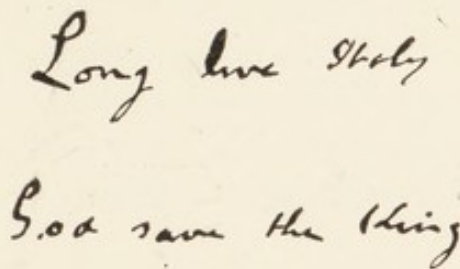 Long live Italy
God save the King